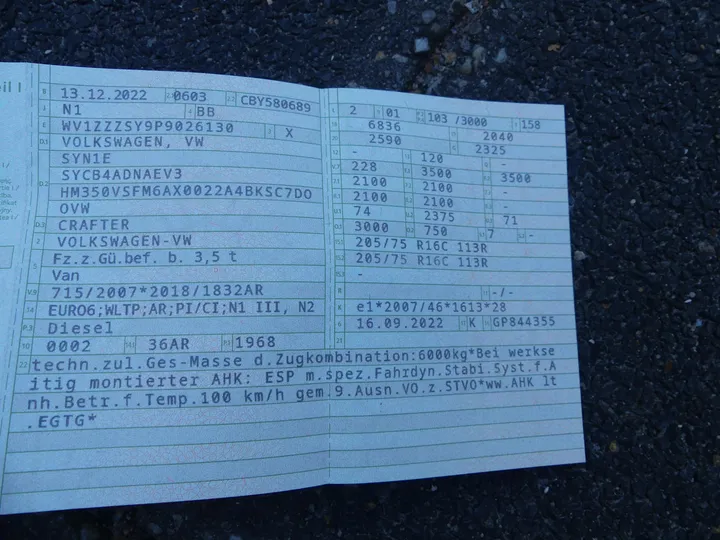 B 13.12.2022 0603 CBY580689
J N1 BB
E WV1ZZZSY9P9026130 X
D.1 VOLKSWAGEN, VW
SYN1E
SYCB4ADNAEV3
D.2 HM350VSFM6AX0022A4BKSC7DO
OVW
D.3 CRAFTER
2 VOLKSWAGEN-VW
5 Fz.z.Gü.bef. b. 3,5 t
Van
V.9 715/2007*2018/1832AR
14 EURO6;WLTP;AR;PI/CI;N1 III, N2
P.3 Diesel
10 0002 36AR 1968
2 01 103 /3000 158
6836 2040
2590 2325
- 120 -
228 3500 3500
2100 2100 -
2100 2100 -
74 2375 71
3000 750 7 -
205/75 R16C 113R
205/75 R16C 113R
-
- -/-
K e1*2007/46*1613*28
6 16.09.2022 K GP844355
21
22 techn.zul.Ges-Masse d.Zugkombination:6000kg*Bei werkse
itig montierter AHK: ESP m.spez.Fahrdyn.Stabi.Syst.f.A
nh.Betr.f.Temp.100 km/h gem.9.Ausn.VO.z.STVO*ww.AHK lt
.EGTG*